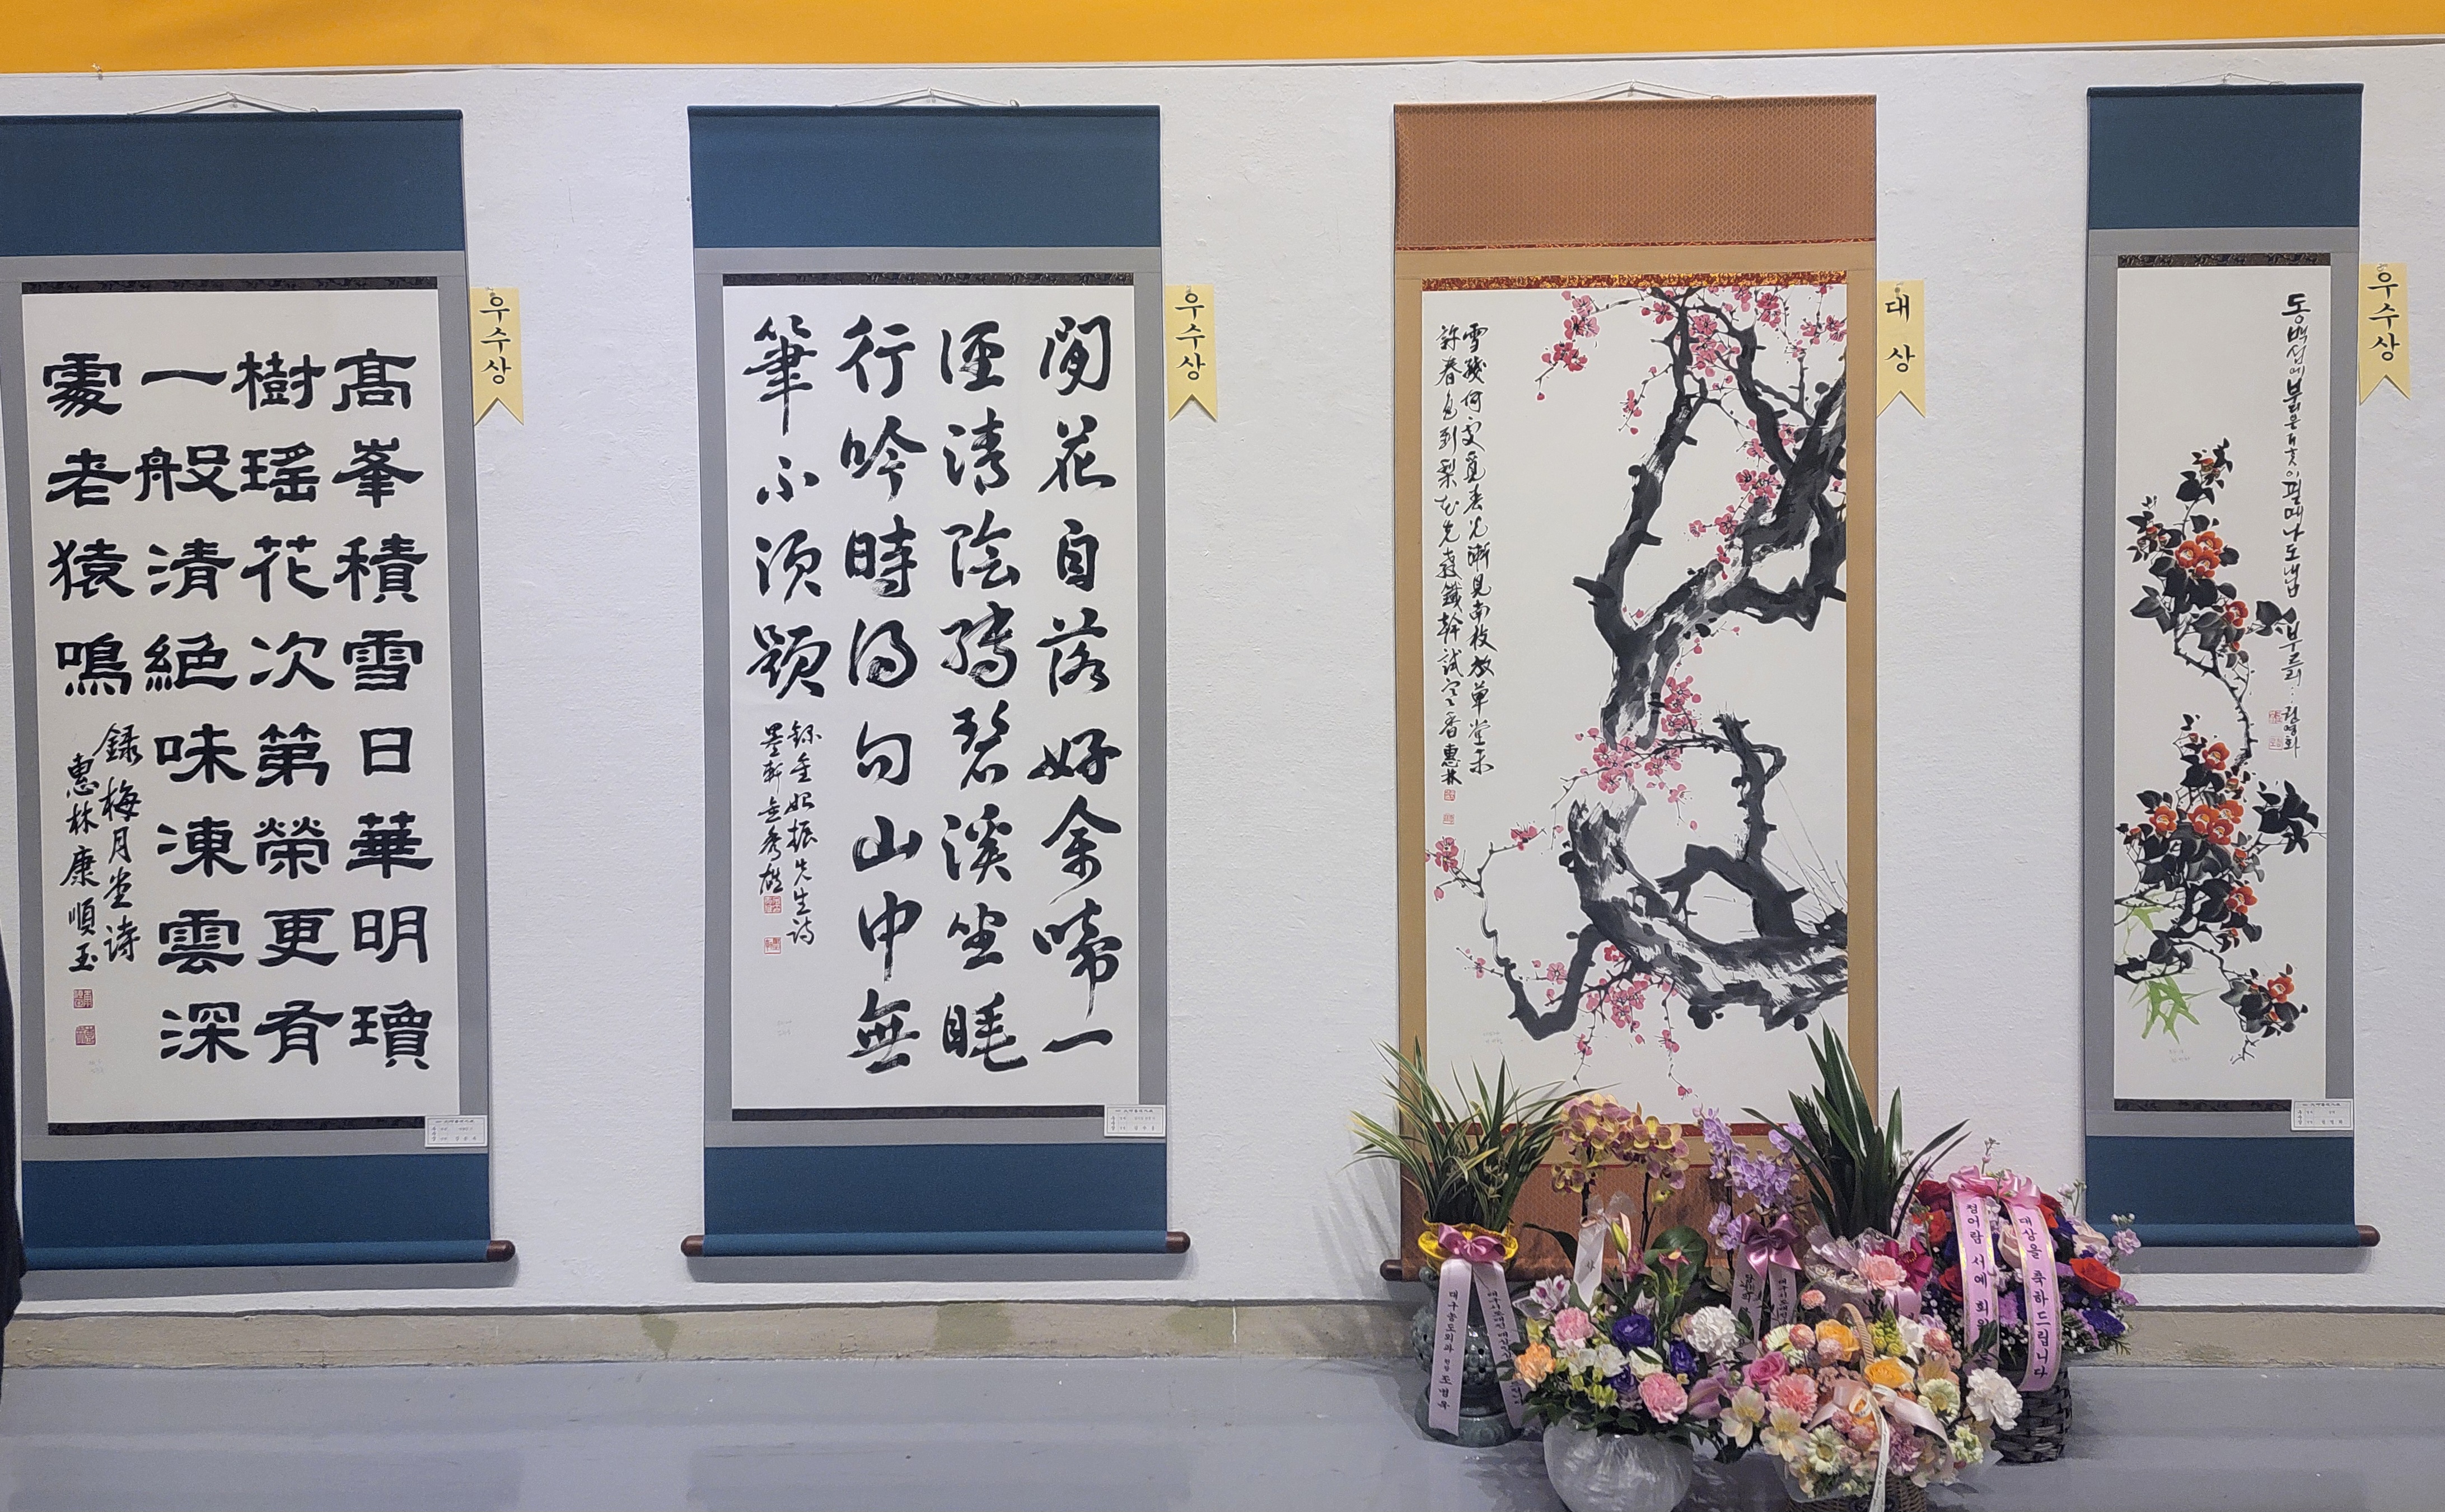 高峯積雪日華明瓊
樹瑤花次第榮更有
一般清絕味凍雲深
處老猿鳴
錄梅月堂詩
惠林康順玉
우수상
閒花自落好禽啼一
徑清陰轉碧溪坐睡
行吟時得句山中無
筆不須題
錄金始振先生詩
우수상
雪殘何處覓春光漸見南枝放草堂未
許春色到梨花先發鐵幹試寒香 惠林
대상
동백섬에 부리은
필때나 도냅
우수상
대구농도외과 원장 도병욱
정어람 서예 회원
대상을 축하드립니다